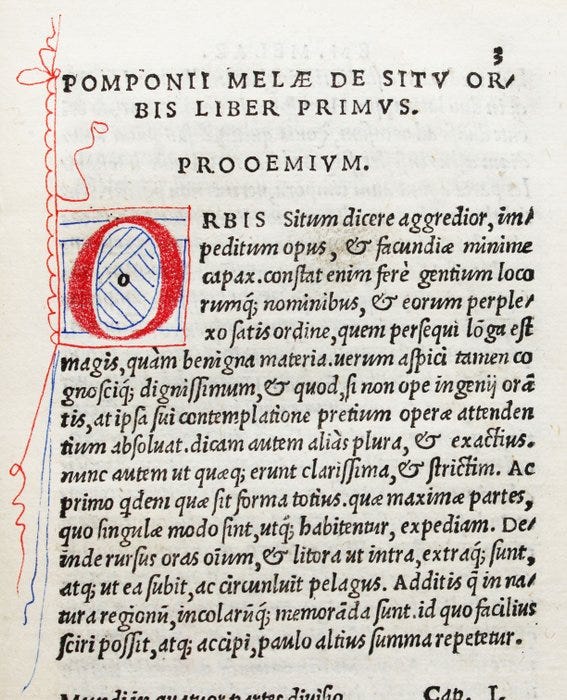 3
POMPONII MELÆ DE SITV OR/
BIS LIBER PRIMVS.
PROOEMIVM.
ORBIS Situm dicere aggredior, im/
peditum opus, & facundiæ minime
capax. constat enim ferè gentium loco
rumq; nominibus, & eorum perple/
xo satis ordine, quem persequi lōga est
magis, quàm benigna materia. uerum aspici tamen co
gnosciq; dignissimum, & quod, si non ope ingenij orā
tis, at ipsa sui contemplatione pretium operæ attenden
tium absoluat. dicam autem aliàs plura, & exactius.
nunc autem ut quæq; erunt clarissima, & strictim. Ac
primo q̄dem quæ sit forma totius. quæ maximæ partes,
quo singulæ modo sint, utq; habitentur, expediam. De/
inde rursus oras oīum, & litora ut intra, extraq; sunt,
atq; ut ea subit, ac circunluit pelagus. Additis q̄ in na/
tura regionū, incolarūq; memorāda sunt. id quo facilius
sciri possit, atq; accipi, paulo altius summa repetetur.
Mundi in quatuor partes diuisio. Cap. I.